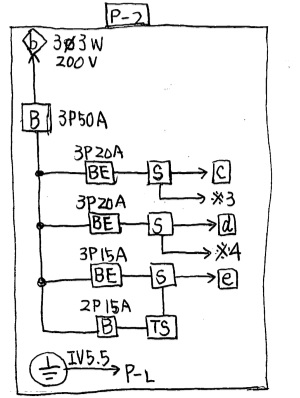 P-2
b 3ø3W
200V
B 3P50A
3P20A
BE S c
※3
3P20A
BE S d
※4
3P15A
BE S e
2P15A
B TS
IV5.5
P-L